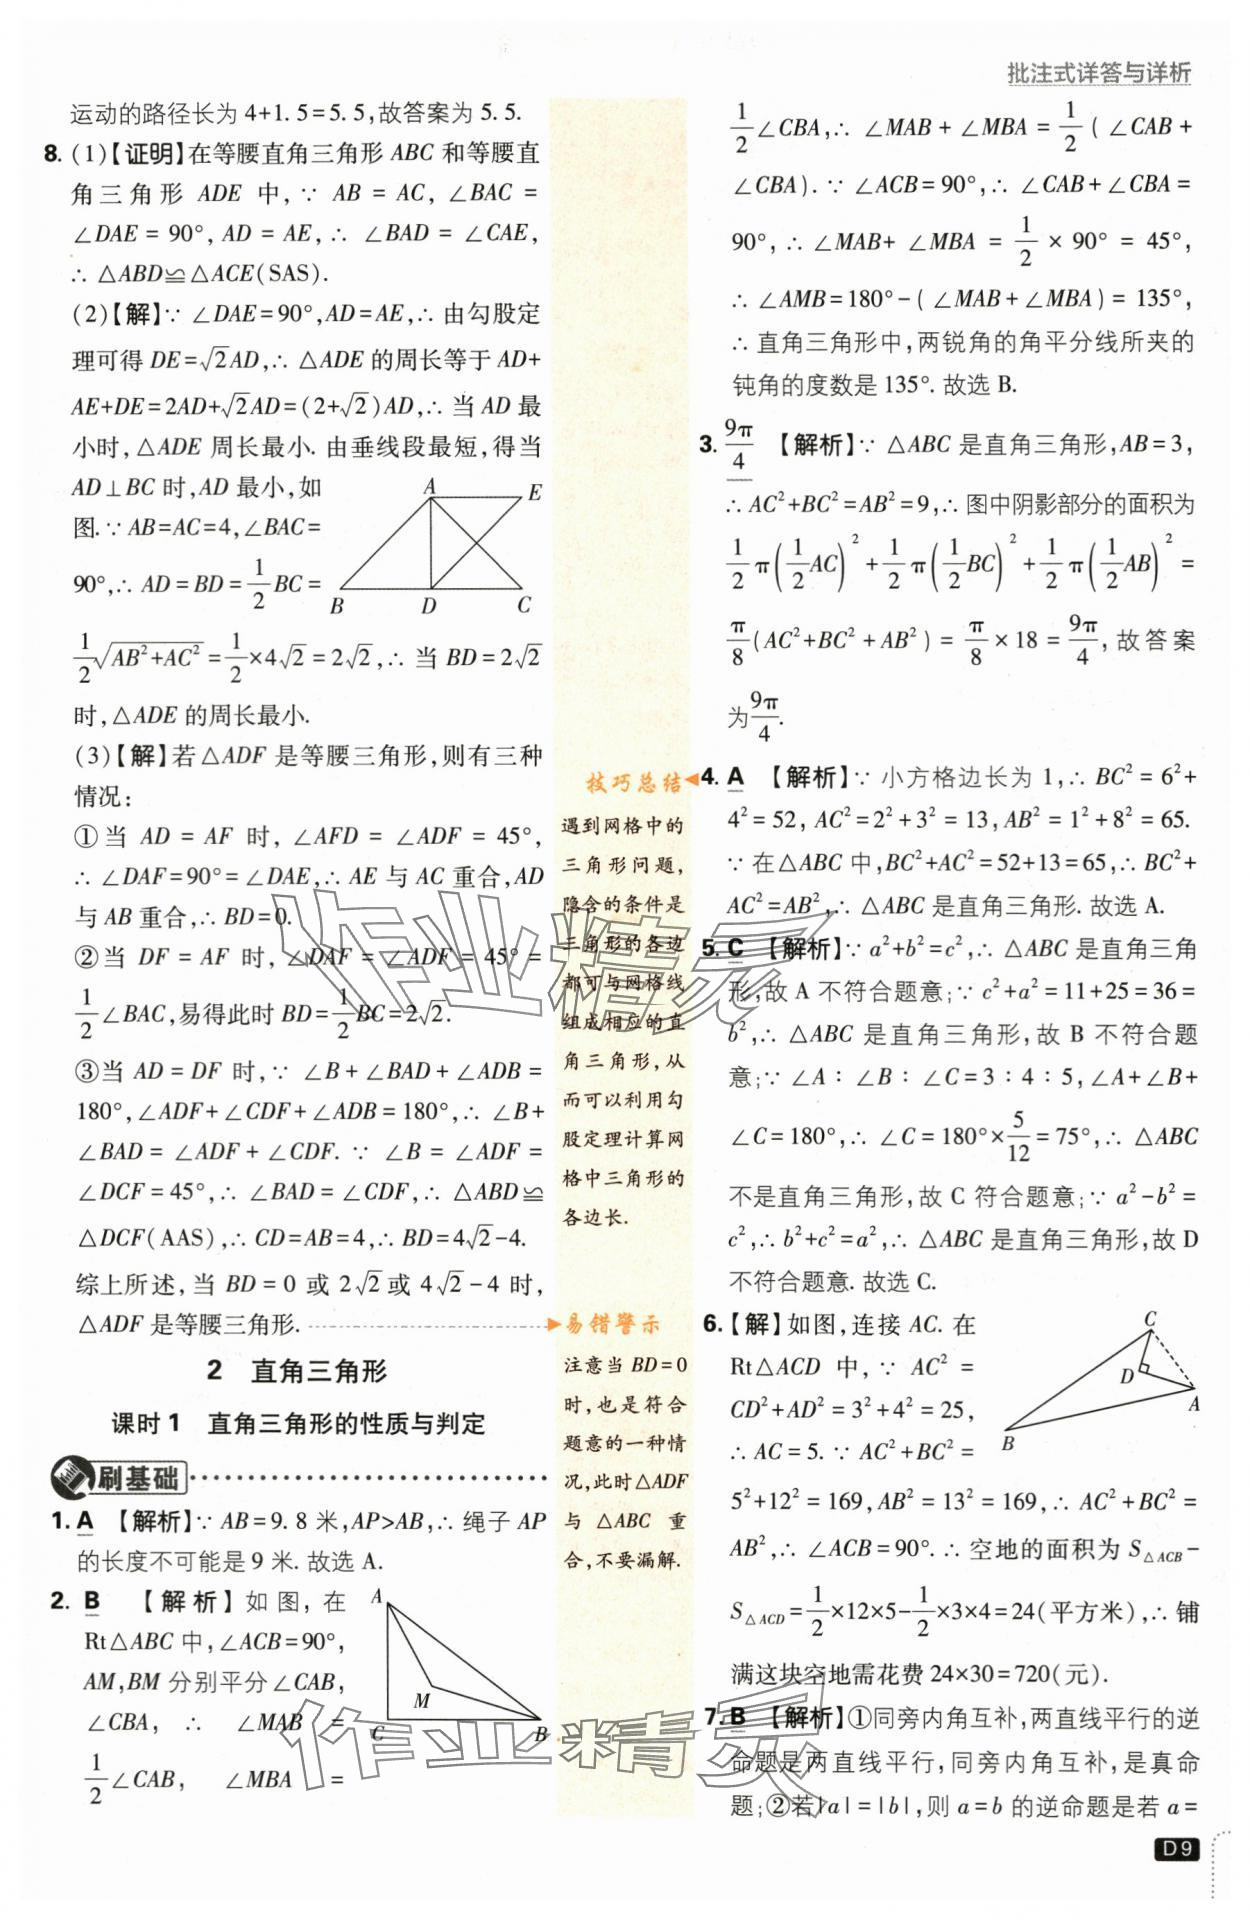 批注式详答与详析
运动的路径长为 4+1.5=5.5,故答案为 5.5.
8. (1)【证明】在等腰直角三角形 ABC 和等腰直
角三角形 ADE 中,∵ AB = AC, ∠BAC =
∠DAE = 90°, AD = AE, ∴ ∠BAD = ∠CAE,
∴ △ABD≌△ACE(SAS).
(2)【解】∵ ∠DAE=90°,AD=AE,∴ 由勾股定
理可得 DE=√2AD,∴ △ADE 的周长等于 AD+
AE+DE=2AD+√2AD=(2+√2)AD,∴ 当 AD 最
小时,△ADE 周长最小. 由垂线段最短,得当
AD⊥BC 时,AD 最小,如
图.∵ AB=AC=4,∠BAC=
90°,∴ AD=BD=1/2BC=
A E B D C
1/2√(AB²+AC²)=1/2×4√2=2√2,∴ 当 BD=2√2
时,△ADE 的周长最小.
(3)【解】若△ADF 是等腰三角形,则有三种
情况:
①当 AD = AF 时, ∠AFD = ∠ADF = 45°,
∴ ∠DAF=90°=∠DAE,∴ AE 与 AC 重合,AD
与 AB 重合,∴ BD=0.
②当 DF = AF 时, ∠DAF = ∠ADF = 45° =
1/2∠BAC,易得此时 BD=1/2BC=2√2.
③当 AD = DF 时,∵ ∠B+∠BAD+∠ADB =
180°,∠ADF+∠CDF+∠ADB=180°,∴ ∠B+
∠BAD = ∠ADF + ∠CDF. ∵ ∠B = ∠ADF =
∠DCF=45°,∴ ∠BAD=∠CDF,∴ △ABD≌
△DCF(AAS),∴ CD=AB=4,∴ BD=4√2-4.
综上所述,当 BD=0 或 2√2或 4√2-4 时,
△ADF 是等腰三角形.
2 直角三角形
课时 1 直角三角形的性质与判定
刷基础
1. A 【解析】∵ AB=9.8 米,AP>AB,∴ 绳子 AP
的长度不可能是 9 米. 故选 A.
2. B 【解析】如图,在
Rt△ABC 中,∠ACB=90°,
AM,BM 分别平分∠CAB,
∠CBA, ∴ ∠MAB =
1/2∠CAB, ∠MBA =
A M C B
技巧总结
遇到网格中的
三角形问题,
隐含的条件是
三角形的各边
都可与网格线
组成相应的直
角三角形,从
而可以利用勾
股定理计算网
格中三角形的
各边长.
易错警示
注意当 BD=0
时,也是符合
题意的一种情
况,此时△ADF
与 △ABC 重
合,不要漏解.
1/2∠CBA,∴ ∠MAB+∠MBA=1/2(∠CAB+
∠CBA). ∵ ∠ACB=90°,∴ ∠CAB+∠CBA=
90°,∴ ∠MAB+∠MBA = 1/2 × 90° = 45°,
∴ ∠AMB=180°-(∠MAB+∠MBA)=135°,
∴ 直角三角形中,两锐角的角平分线所夹的
钝角的度数是 135°. 故选 B.
3. 9π/4 【解析】∵ △ABC 是直角三角形,AB=3,
∴ AC²+BC²=AB²=9,∴ 图中阴影部分的面积为
1/2π(1/2AC)²+1/2π(1/2BC)²+1/2π(1/2AB)²=
π/8(AC²+BC²+AB²)=π/8×18=9π/4,故答案
为9π/4.
4. A 【解析】∵ 小方格边长为 1,∴ BC²=6²+
4²=52, AC²=2²+3²=13,AB²=1²+8²=65.
∵ 在△ABC 中,BC²+AC²=52+13=65,∴ BC²+
AC²=AB²,∴ △ABC 是直角三角形. 故选 A.
5. C 【解析】∵ a²+b²=c²,∴ △ABC 是直角三角
形,故 A 不符合题意;∵ c²+a²=11+25=36=
b²,∴ △ABC 是直角三角形,故 B 不符合题
意;∵ ∠A∶∠B∶∠C=3∶4∶5,∠A+∠B+
∠C=180°,∴ ∠C=180°×5/12=75°,∴ △ABC
不是直角三角形,故 C 符合题意;∵ a²-b²=
c²,∴ b²+c²=a²,∴ △ABC 是直角三角形,故 D
不符合题意. 故选 C.
6.【解】如图,连接 AC. 在
Rt△ACD 中,∵ AC² =
CD²+AD²=3²+4²=25,
∴ AC=5. ∵ AC²+BC²=
C D A B
5²+12²=169,AB²=13²=169,∴ AC²+BC²=
AB²,∴ ∠ACB=90°. ∴ 空地的面积为 S△ACB-
S△ACD=1/2×12×5-1/2×3×4=24(平方米),∴ 铺
满这块空地需花费 24×30=720(元).
7. B 【解析】①同旁内角互补,两直线平行的逆
命题是两直线平行,同旁内角互补,是真命
题;②若|a|=|b|,则 a=b 的逆命题是若 a=
D9
作业精灵
作业精灵